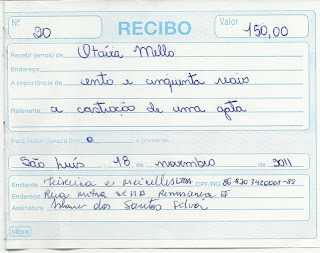 Nº 20 RECIBO Valor 150,00
Recebi (emos) de Itaíra Mello
Endereço
A importância de cento e cinquenta reais
Referente a castração de uma gata
Para maior clareza firm o o presente.
São Luís 18 de novembro de 2011
Emitente Teixeira e Meirelles LTDA CPF/RG
Endereço Rua
Assinatura dos Santos Silva
tilibra